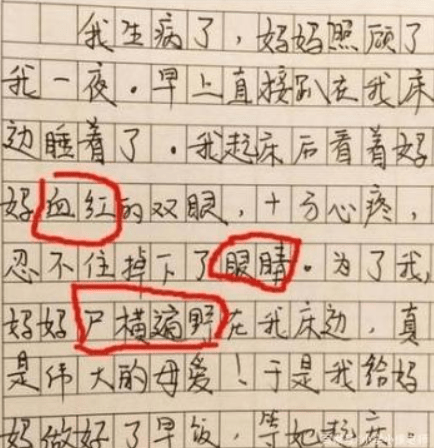 我生病了，妈妈照顾了
我一夜。早上直接趴在我床
边睡着了。我起床后看着妈
妈血红的双眼，十万心疼，
忍不住掉下了眼睛。为了我，
妈妈尸横遍野在我床边，真
是伟大的母爱！于是我给妈
妈做好了早饭，等她起床。